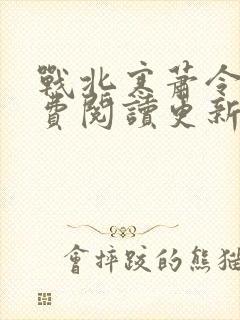 戰北寒蕭令
費閱讀更新
會摔跤的熊猫